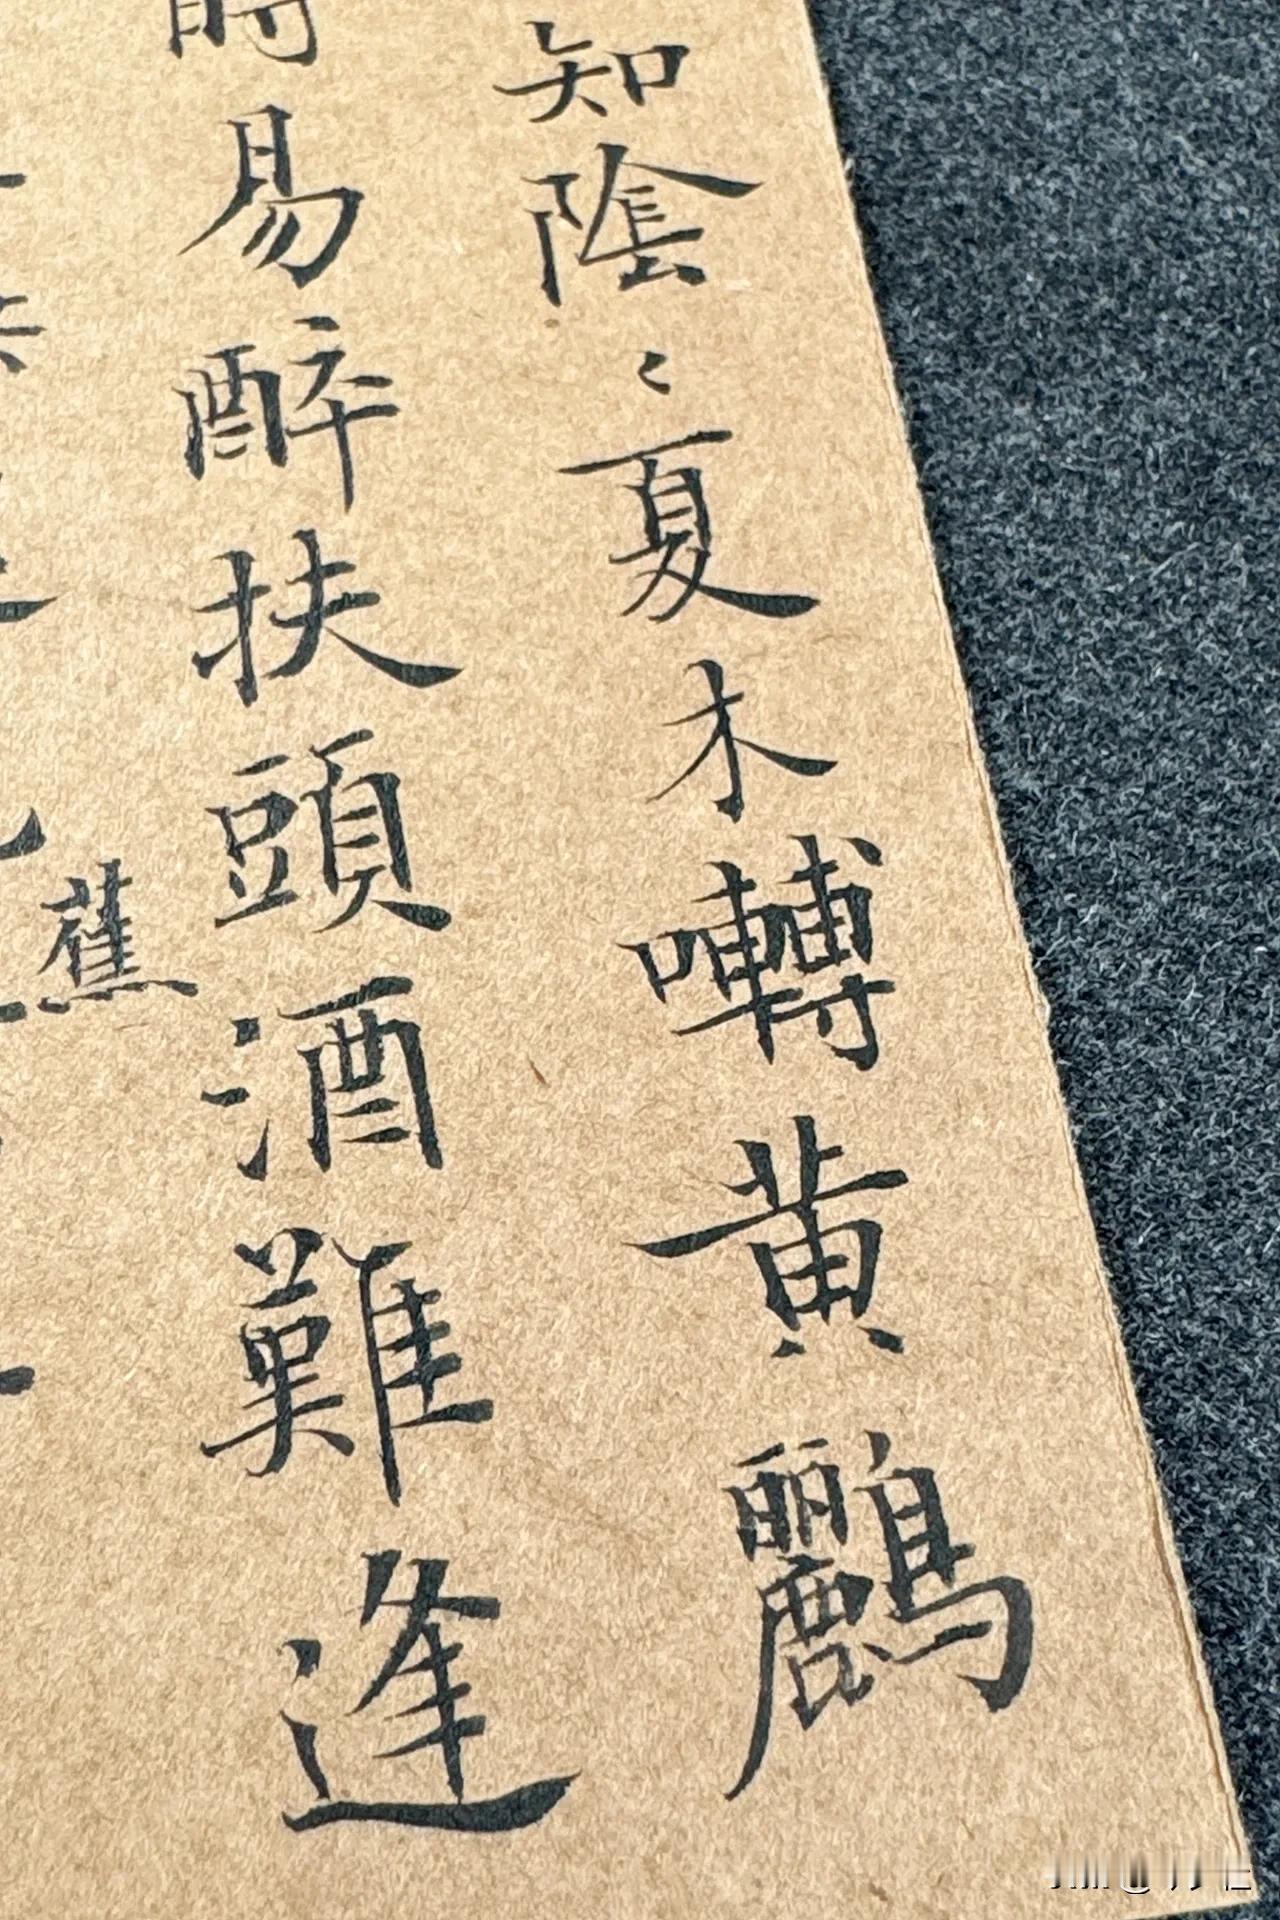 知陰〻夏木囀黃鸝
時易醉扶頭酒難逢
蕉